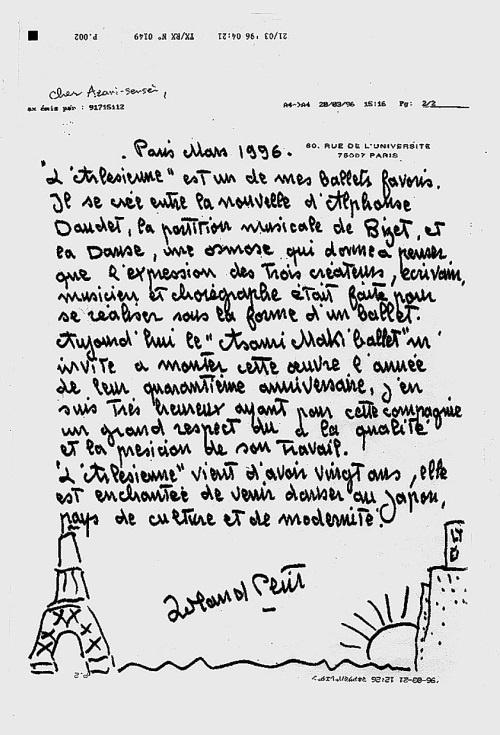 21/03 '96 04:21 TX/RX Nº 0149 P.002
Cher Azari-sensei,
ax émis par : 91715112 A4->A4 28/03/96 15:16 Pg: 2/2
60. RUE DE L'UNIVERSITE
75007 PARIS
Paris Mars 1996.
"L'Arlesienne" est un de mes ballets favoris.
Il se crée entre la nouvelle d'Alphonse
Daudet, la partition musicale de Bizet, et
la Danse, une osmose qui donne à penser
que l'expression des trois créateurs, écrivain,
musicien et chorégraphe était faite pour
se réaliser sous la forme d'un ballet.
Aujourd'hui le "Asami Maki ballet" m'
invite a monter cette œuvre l'année
de leur quarantième anniversaire, j'en
suis très heureux ayant pour cette compagnie
un grand respect du à la qualité
et la présicion de son travail.
"L'Arlesienne" vient d'avoir vingt ans, elle
est enchantée de venir danser au Japon,
pays de culture et de modernité.
Roland Petit
P.2